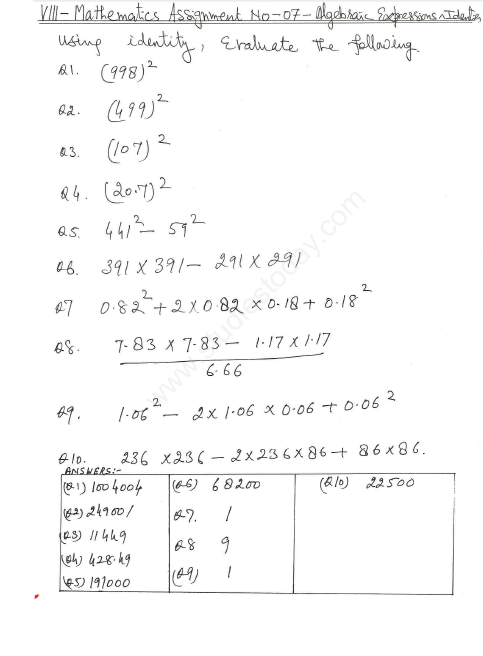 VIII- Mathematics Assignment No-07- Algebraic Expressions & Identities
Using identity, Evaluate the following.
Q1. (998)²
Q2. (499)²
Q3. (107)²
Q4. (20.7)²
Q5. 441² - 59²
Q6. 391 × 391 - 291 × 291
Q7 0.82² + 2 × 0.82 × 0.18 + 0.18²
Q8. 7.83 × 7.83 - 1.17 × 1.17
6.66
Q9. 1.06² - 2 × 1.06 × 0.06 + 0.06²
Q10. 236 × 236 - 2 × 236 × 86 + 86 × 86.
ANSWERS:-
(Q1) 1004004
(Q2) 249001
(Q3) 11449
(Q4) 428.49
(Q5) 191000
(Q6) 68200
Q7. 1
Q8 9
(Q9) 1
(Q10) 22500
www.studiestoday.com